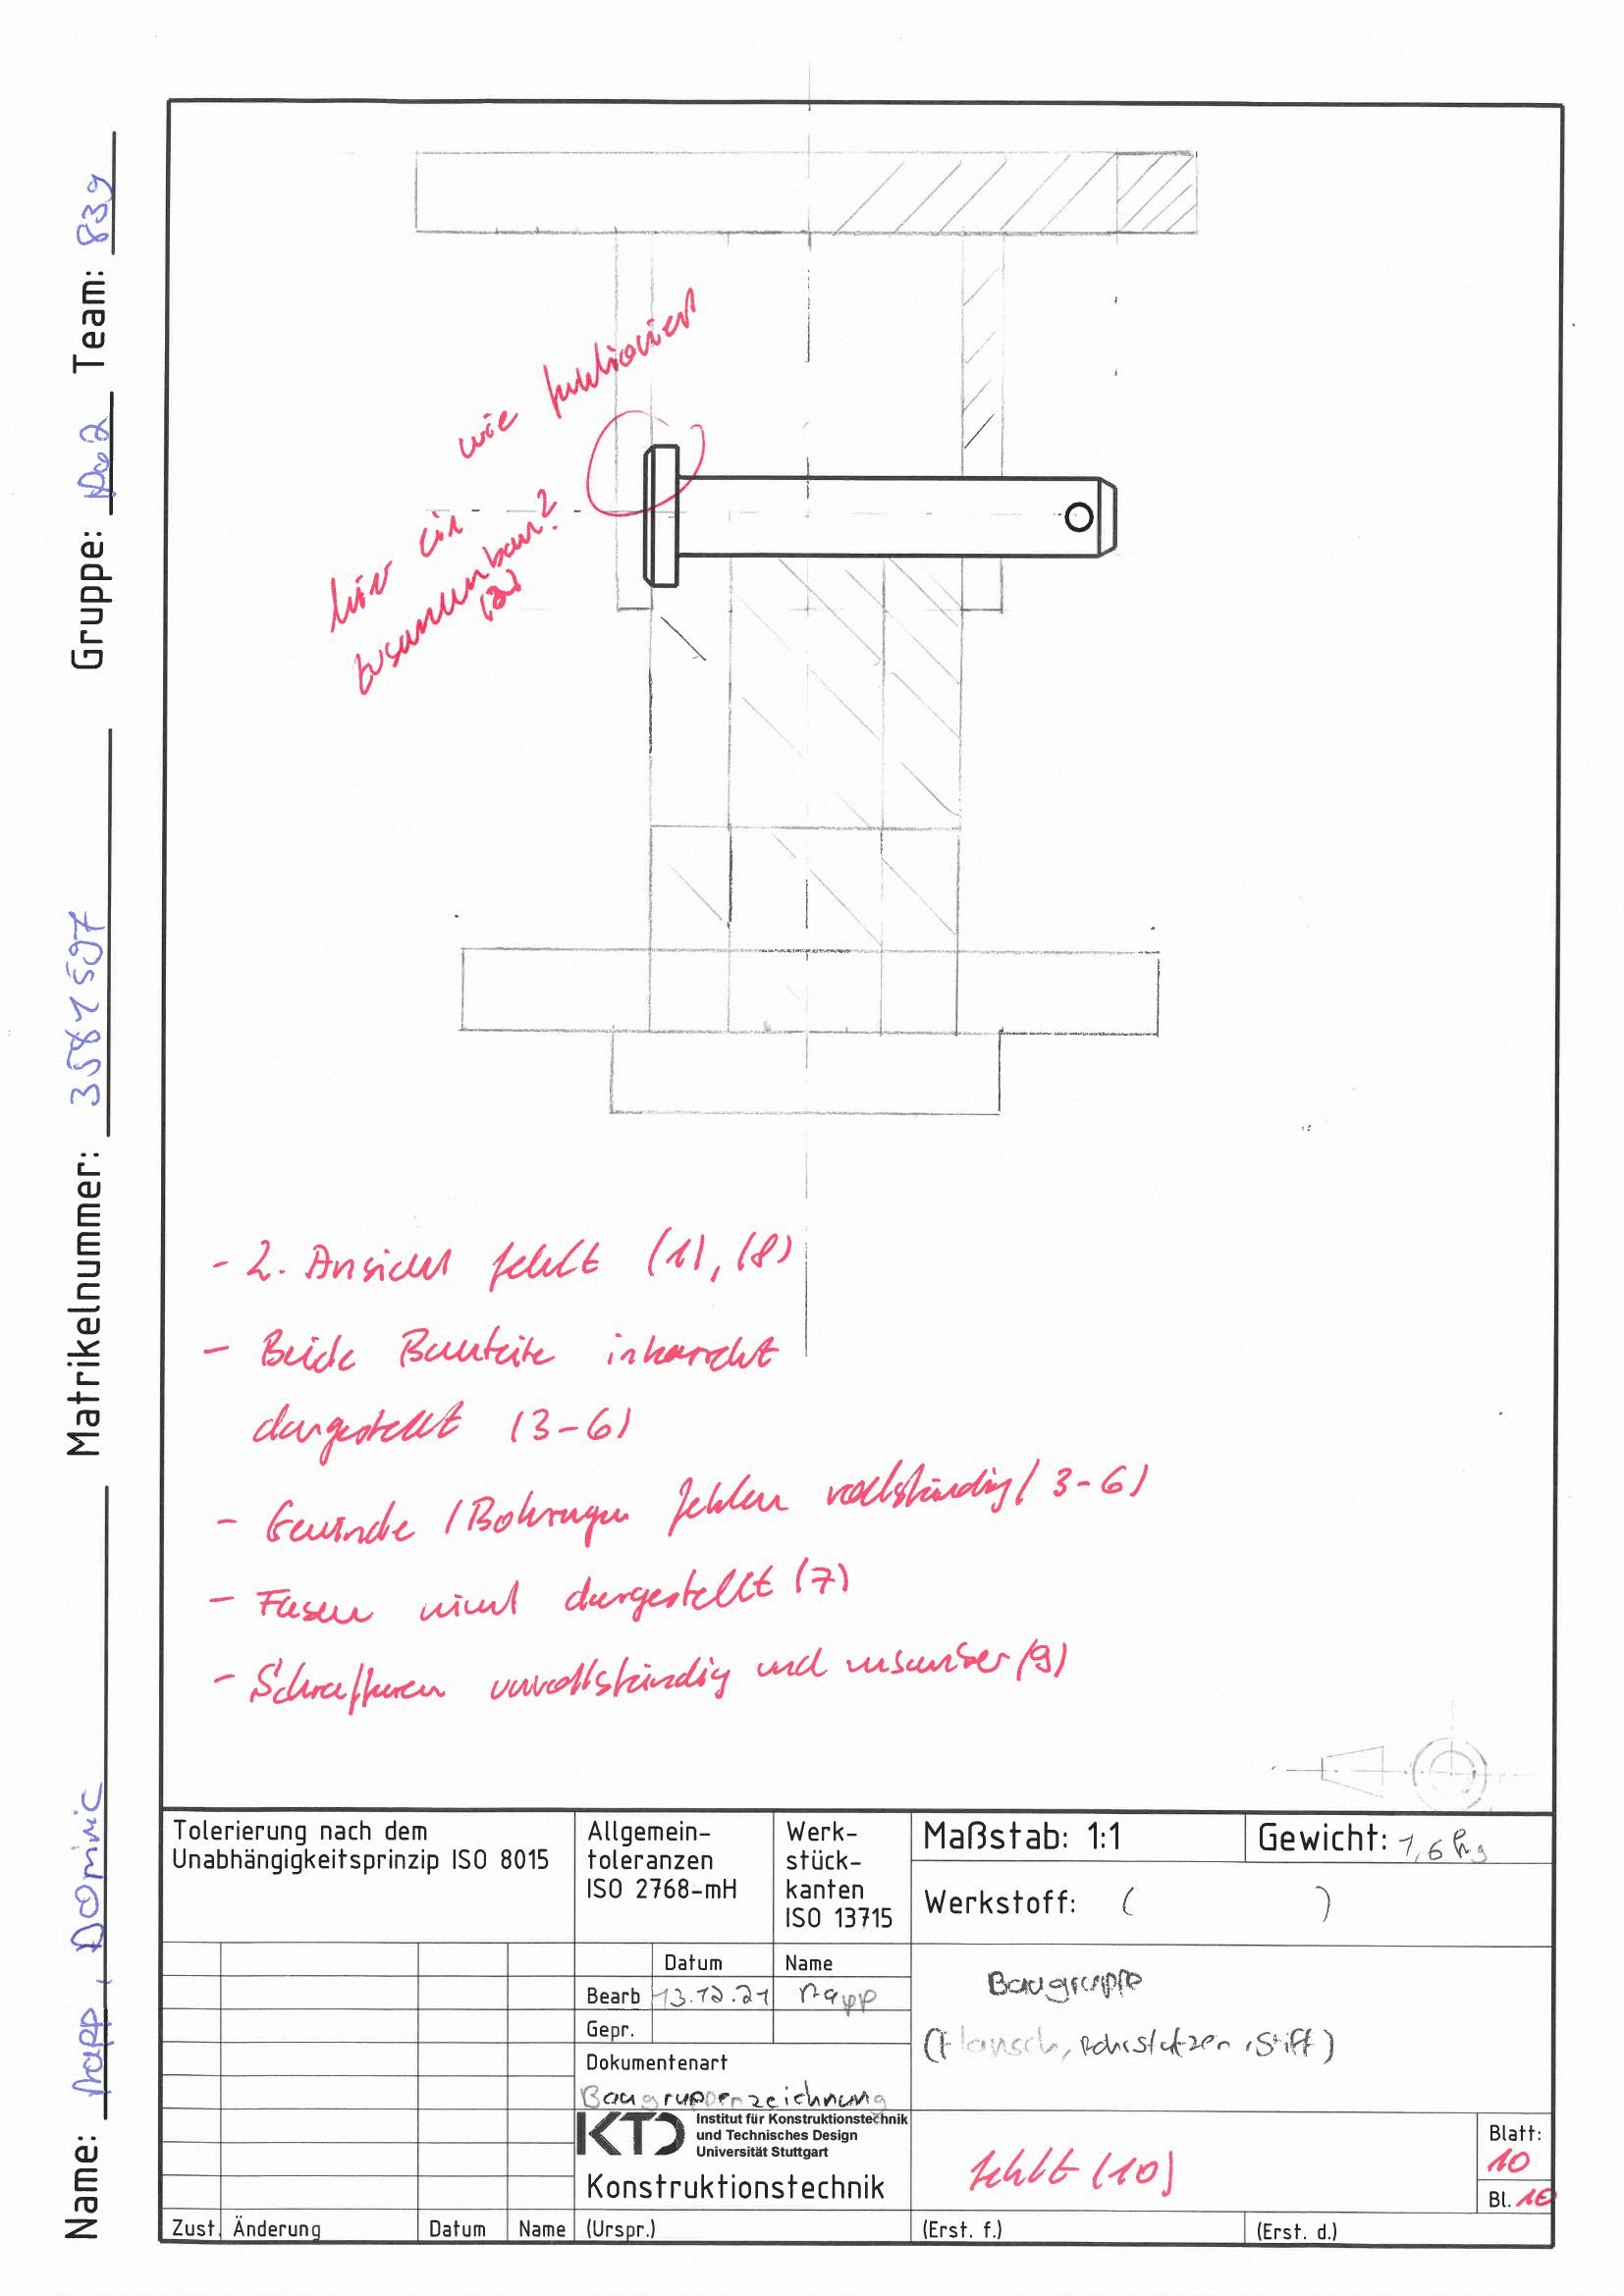 Name: Rapp, Dominic Matrikelnummer: 3587597 Gruppe: Do2 Team: 839
wie funktioniert
hier ein
zusammenbau?
(2)
- 2. Ansicht fehlt (1), (8)
- Beide Bauteile inkorrekt
dargestellt (3-6)
- Gewinde / Bohrungen fehlen vollständig (3-6)
- Fasen nicht dargestellt (7)
- Schraffuren unvollständig und unsauber (9)
Tolerierung nach dem
Unabhängigkeitsprinzip ISO 8015
Allgemein-
toleranzen
ISO 2768-mH
Werk-
stück-
kanten
ISO 13715
Maßstab: 1:1
Gewicht: 1,6 kg
Werkstoff: ( )
Datum Name
Bearb 13.12.21 Rapp
Gepr.
Dokumentenart
Baugruppenzeichnung
Baugruppe
(Flansch, Rohrstutzen, Stift)
KTD Institut für Konstruktionstechnik
und Technisches Design
Universität Stuttgart
Konstruktionstechnik
fehlt (10)
Blatt:
10
Bl. 10
Zust. Änderung Datum Name (Urspr.) (Erst. f.) (Erst. d.)